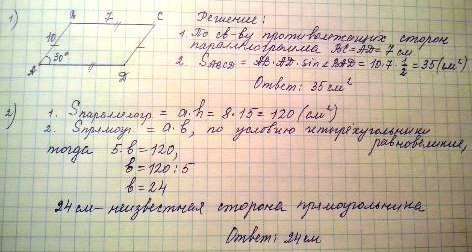 1)
B 7 C
10
A 30° D
Решение:
1. По св-ву противолежащих сторон
параллелограмма BC=AD=7 см
2. SABCD = AB·AD·sin∠BAD = 10·7·1/2 = 35(см²)
Ответ: 35 см²
2) 1. Sпараллелогр = a·h = 8·15=120 (см²)
2. Sпрямоуг = a·b, по условию четырёхугольники
равновеликие,
тогда 5·b=120,
b=120:5
b=24
24 см – неизвестная сторона прямоугольника
Ответ: 24 см